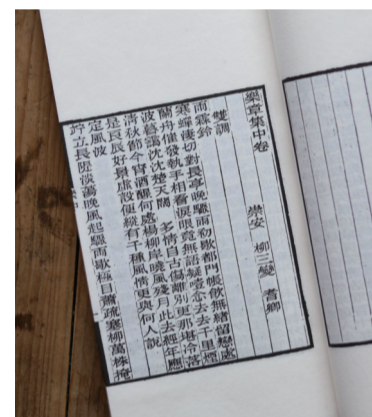 樂章集中卷
柳三變 耆卿
雙調
雨霖鈴
寒蟬淒切對長亭晚驟雨初歇都門帳飲無緒留戀處
蘭舟催發執手相看淚眼竟無語凝噎念去去千里煙
波暮靄沈沈楚天闊 多情自古傷離別更那堪冷落
清秋節今宵酒醒何處楊柳岸曉風殘月此去經年應
是良辰好景虛設便縱有千種風情更與何人說
定風波
佇立長隄淡蕩晚風起驟雨歇極目蕭疏塞柳萬株掩